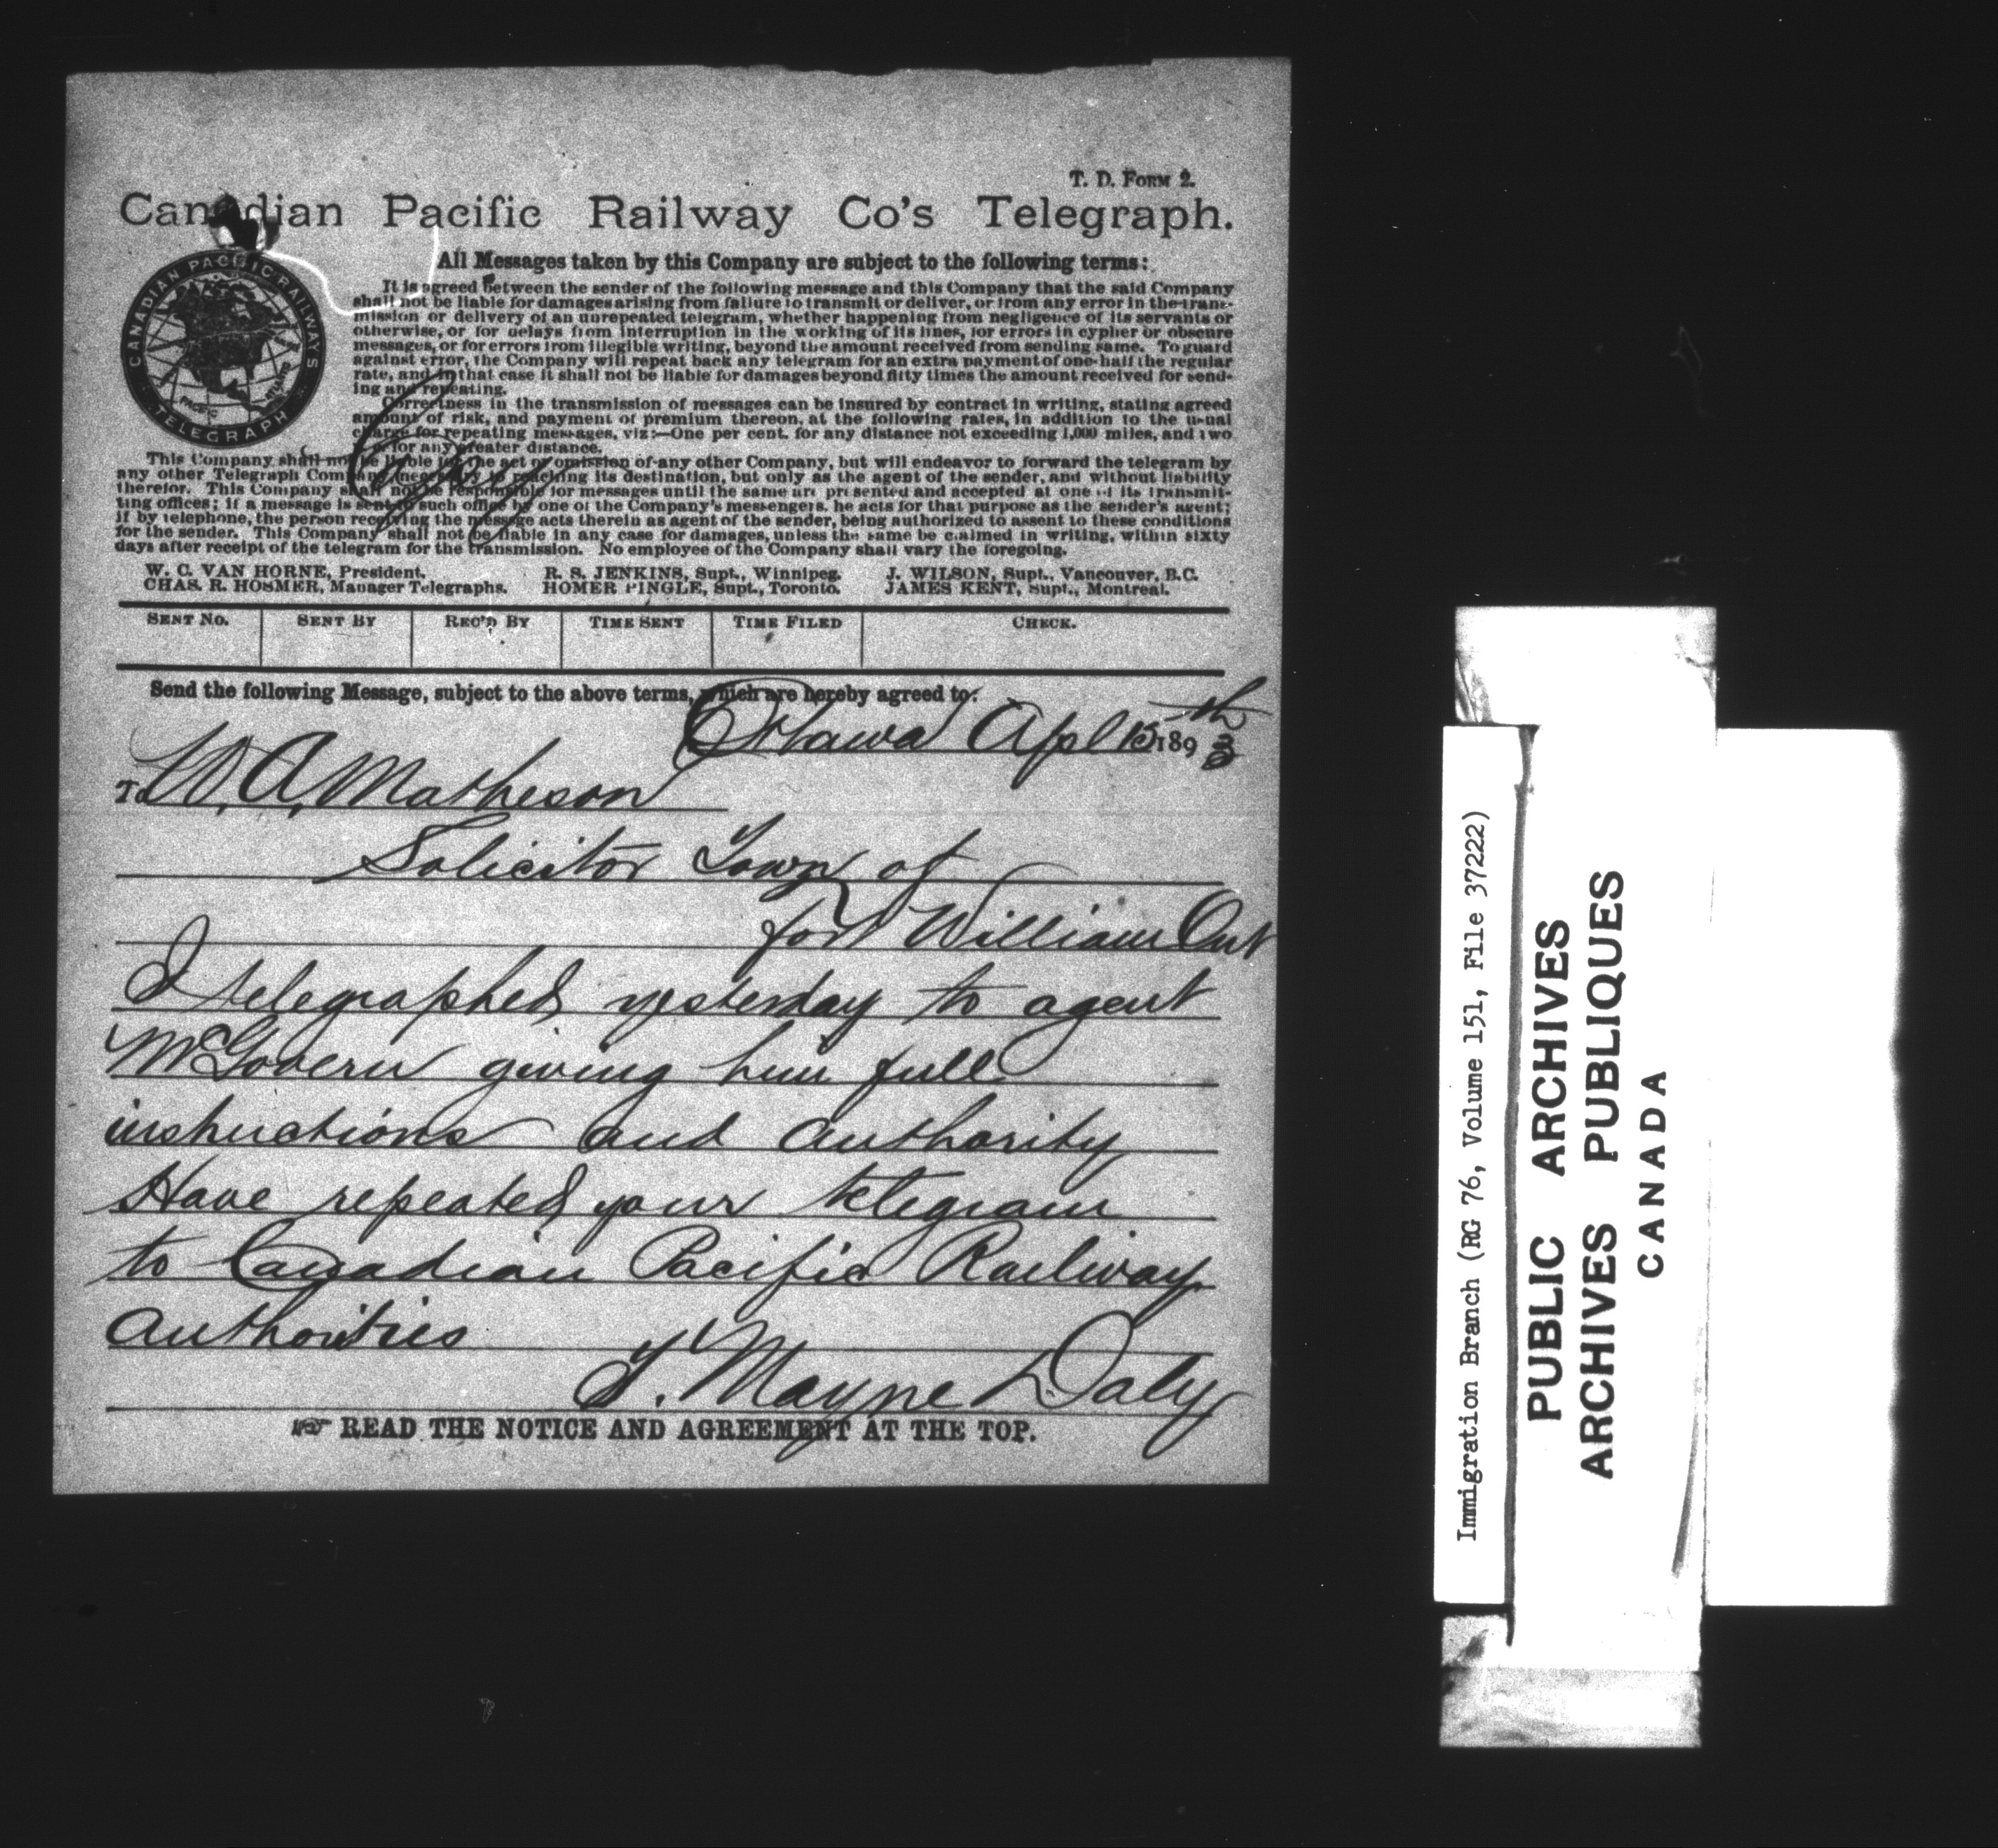 T. D. FORM 2.
Canadian Pacific Railway Co's Telegraph.
CANADIAN PACIFIC RAILWAY'S TELEGRAPH
PACIFIC
ATLANTIC
All Messages taken by this Company are subject to the following terms:
It is agreed between the sender of the following message and this Company that the said Company
shall not be liable for damages arising from failure to transmit or deliver, or from any error in the trans-
mission or delivery of an unrepeated telegram, whether happening from negligence of its servants or
otherwise, or for delays from interruption in the working of its lines, for errors in cypher or obscure
messages, or for errors from illegible writing, beyond the amount received from sending same. To guard
against error, the Company will repeat back any telegram for an extra payment of one-half the regular
rate, and in that case it shall not be liable for damages beyond fifty times the amount received for send-
ing and repeating.
Correctness in the transmission of messages can be insured by contract in writing, stating agreed
amount of risk, and payment of premium thereon, at the following rates, in addition to the usual
charge for repeating messages, viz:—One per cent. for any distance not exceeding 1,000 miles, and two
for any greater distance.
This Company shall not be liable for the act or omission of any other Company, but will endeavor to forward the telegram by
any other Telegraph Company necessary to reaching its destination, but only as the agent of the sender, and without liability
therefor. This Company shall not be responsible for messages until the same are presented and accepted at one of its transmit-
ting offices; if a message is sent to such office by one of the Company's messengers, he acts for that purpose as the sender's agent;
if by telephone, the person receiving the message acts therein as agent of the sender, being authorized to assent to these conditions
for the sender. This Company shall not be liable in any case for damages, unless the same be claimed in writing, within sixty
days after receipt of the telegram for the transmission. No employee of the Company shall vary the foregoing.
W. C. VAN HORNE, President. R. S. JENKINS, Supt., Winnipeg. J. WILSON, Supt., Vancouver, B.C.
CHAS. R. HOSMER, Manager Telegraphs. HOMER PINGLE, Supt., Toronto. JAMES KENT, Supt., Montreal.
SENT NO. SENT BY REC'D BY TIME SENT TIME FILED CHECK.
Send the following Message, subject to the above terms, which are hereby agreed to:
Ottawa Apl 15th 1893
To W. A. Matheson
Solicitor Town of
fort William Ont
I telegraphed yesterday to agent
McGovern giving him full
instructions and authority
Have repeated your telegram
to Canadian Pacific Railway
authorities
T. Mayne Daly
READ THE NOTICE AND AGREEMENT AT THE TOP.
Immigration Branch (RG 76, Volume 151, File 37222)
PUBLIC ARCHIVES
ARCHIVES PUBLIQUES
CANADA